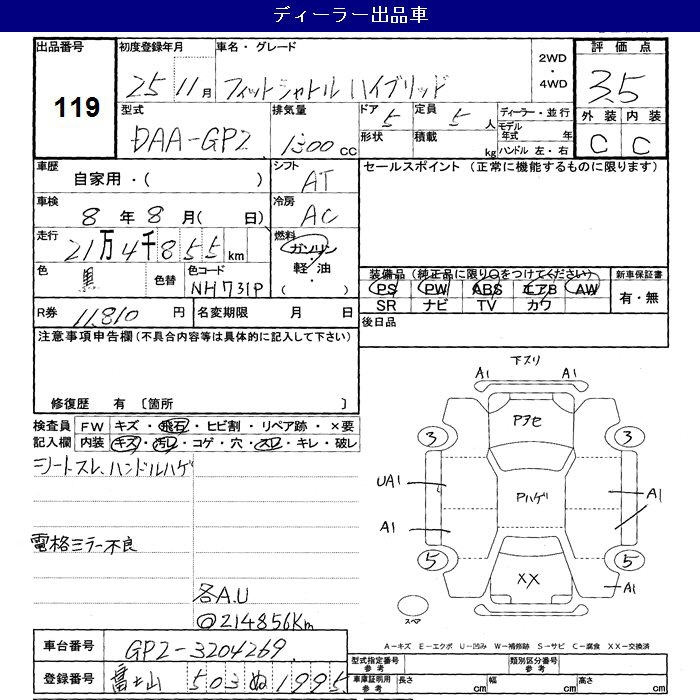 ディーラー出品車
出品番号 初度登録年月 車名・グレード 2WD・4WD 評価点
119 25 11月 フィットシャトル ハイブリッド 3.5
型式 排気量 ドア 5 定員 5人 ディーラー・並行 外装 内装
DAA-GP2 1300cc 形状 積載 kg モデル年式 年 C C
ハンドル 左・右
車歴 シフト セールスポイント (正常に機能するものに限ります)
自家用・( ) AT
車検 冷房
8年8月( 日) AC
走行 燃料
21万4千855km ガソリン・軽油
色 黒 色替 色コード NH731P ( )
装備品 (純正品に限り○をつけてください) 新車保証書
PS PW ABS エアB AW 有・無
SR ナビ TV カワ
R券 11,810円 名変期限 月 日 後日品
注意事項申告欄 (不具合内容等は具体的に記入して下さい)
修復歴 有 〔箇所 〕
検査員 FW キズ・飛石・ヒビ割・リペア跡・×要
記入欄 内装 キズ・汚レ・コゲ・穴・スレ・キレ・破レ
シートスレ、ハンドルハゲ
電格ミラー不良
各A.U
@214856Km
下スリ
A1 A1
Pアセ
3 3
UA1 Pハゲ A1
A1
5 5
XX A1
スペア
A-キズ E-エクボ U-凹み W-補修跡 S-サビ C-腐食 XX-交換済
車台番号 GP2-3204269 型式指定番号 参考 類別区分番号 参考
登録番号 富士山 503 ぬ 1995 車庫証明用 参考 長さ cm 幅 cm 高さ cm